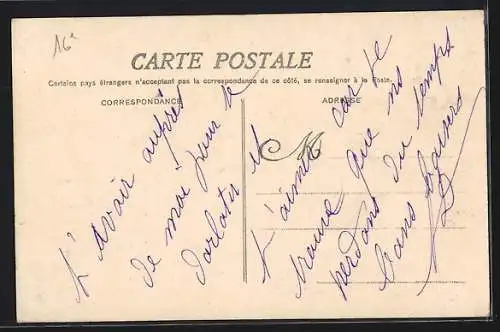 16e
CARTE POSTALE
Certains pays étrangers n'acceptant pas la correspondance de ce côté, se renseigner à la Poste.
CORRESPONDANCE
ADRESSE
t'avoir auprès
de moi pour te
et
t'aimer car je
trouve que nous
perdons du temps
sans baisers